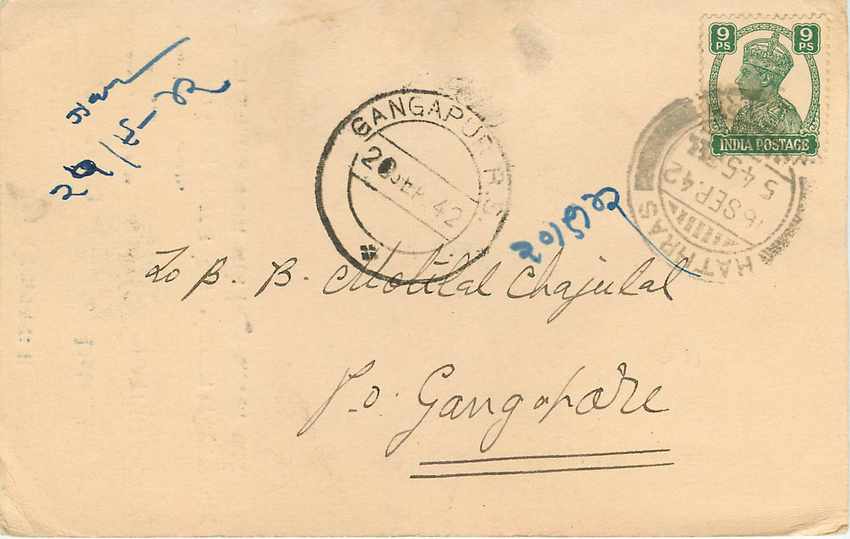 9 PS 9 PS
INDIA POSTAGE
HATHRAS
16 SEP 42
5 45
GANGAPUR R.S.
20 SEP 42
To B. B. Motilal Chajulal
P.O. Gangapore